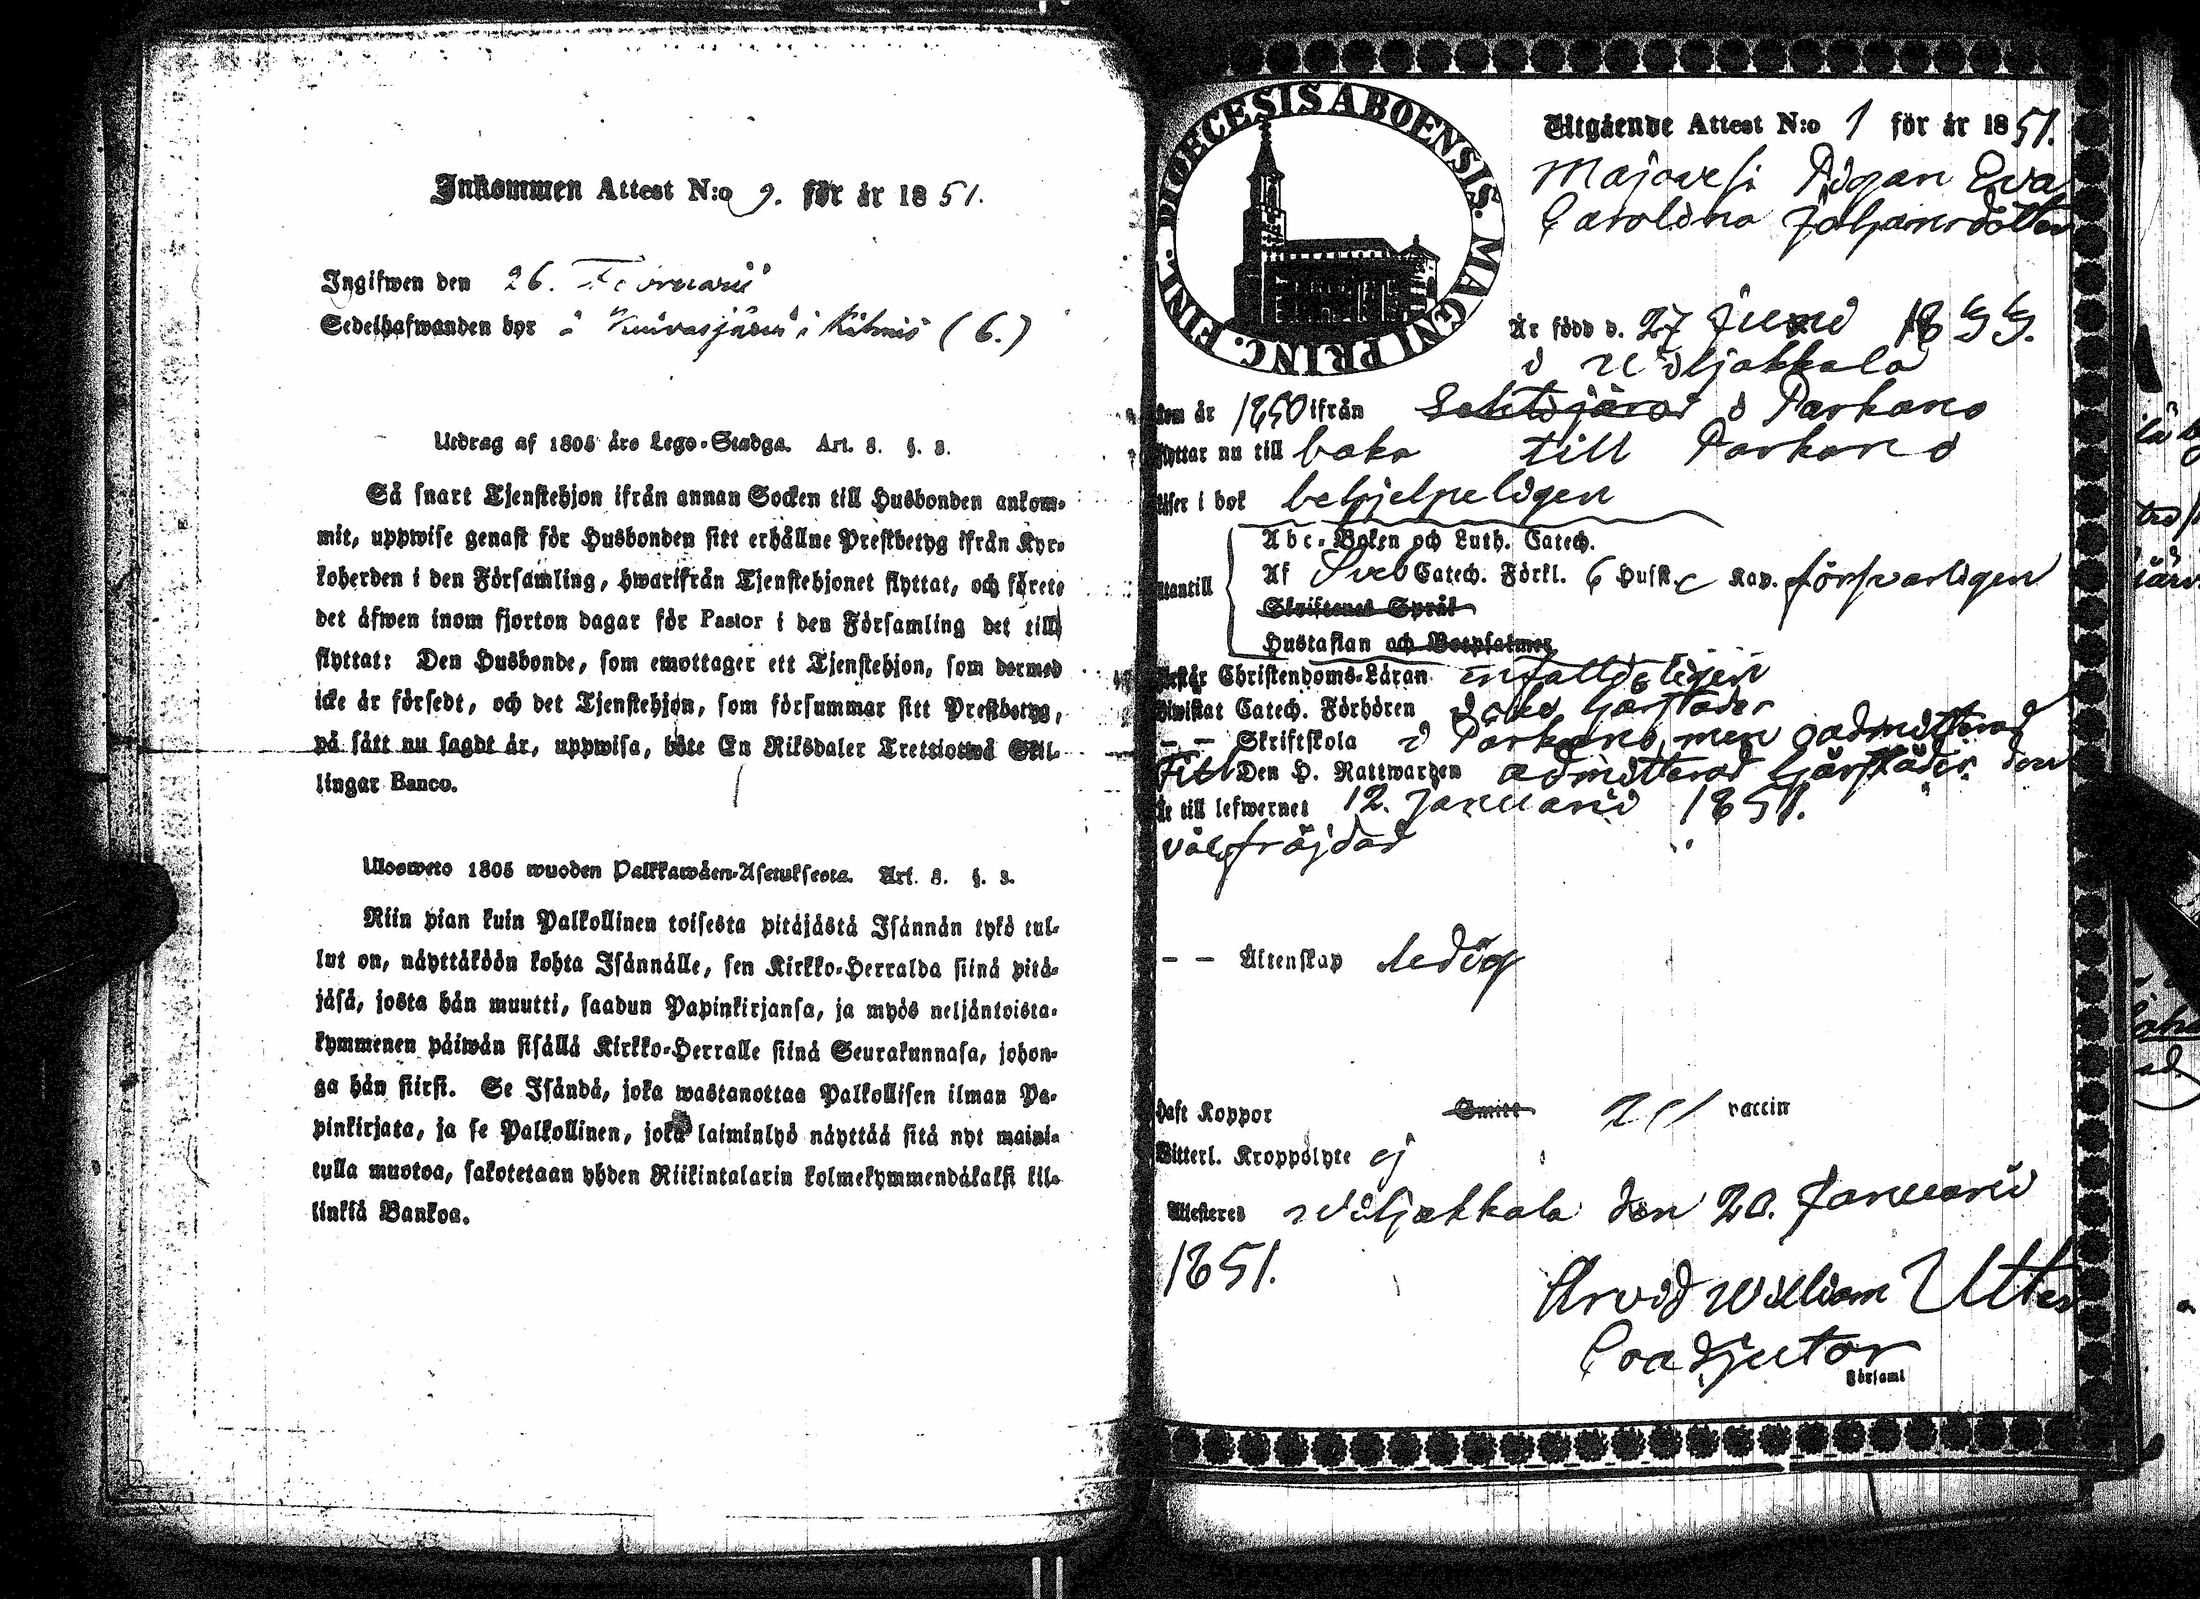 Inkommen Attest N:o 9. för år 1851.
Ingifwen den 26. Februarii
Sedelhafwanden bor å Kuivasjärvi i Kihniö (6.)
Utdrag af 1805 års Lego-Stadga. Art. 8. §. 3.
Så snart Tjenstehjon ifrån annan Socken till Husbonden ankom-
mit, uppwise genast för Husbonden sitt erhållne Prestbetyg ifrån Kyr-
koherden i den Församling, hwarifrån Tjenstehjonet flyttat, och förete
det äfwen inom fjorton dagar för Pastor i den Församling det till
flyttat: Den Husbonde, som emottager ett Tjenstehjon, som dermed
icke är försedt, och det Tjenstehjon, som försummar sitt Prestbetyg,
på sätt nu sagdt är, uppwisa, böte En Riksdaler Trettiotwå Skil-
lingar Banco.
Ulosweto 1805 wuoden Palkkawäen-Asetuksesta. Art. 8. §. 3.
Niin pian kuin Palkollinen toisesta pitäjästä Isännän tykö tul-
lut on, näyttäköön kohta Isännälle, sen Kirkko-Herralda siinä pitä-
jäsä, josta hän muutti, saadun Papinkirjansa, ja myös neljäntoista-
kymmenen päiwän sisällä Kirkko-Herralle siinä Seurakunnasa, johon-
ga hän siirsi. Se Isändä, joka wastanottaa Palkollisen ilman Pa-
pinkirjata, ja se Palkollinen, joka laiminlyö näyttää sitä nyt maini-
tulla muotoa, sakotetaan yhden Riikintalarin kolmekymmendäkaksi kil-
linkiä Bankoa.
DIOECESIS ABOENSIS. MAGNI PRINC. FINL.
Utgående Attest N:o 1 för år 1851.
Pigan Eva
Carolina Johansdotter
Är född d. 27 Juni 1833.
i Wiljakkala
kom år 1850 ifrån i Parkano
flyttar nu till baka till Parkano
läser i bok behjelpeligen
Abc-Boken och Luth. Catech.
utantill Af Sveb Catech. Förkl. 6 Husst. c Kap. försvarligen
Skriftenes Språk
Hustaflan och Botpsalmer
förstår Christendoms-Läran enfalldeligen
biwistat Catech. Förhören icke härstädes
— — Skriftskola i Parkano, men admitterad
till Den H. Nattwarden admitterad härstädes den
Är till lefwernet 12. Januarii 1851.
välfräjdad
— — Äktenskap ledig
haft Koppor Smitt vaccin
Witterl. Kroppslyte ej
Attesteres Wiljakkala den 20. Januarii
1851.
Arvid William Utter
Coadjutor
Församl